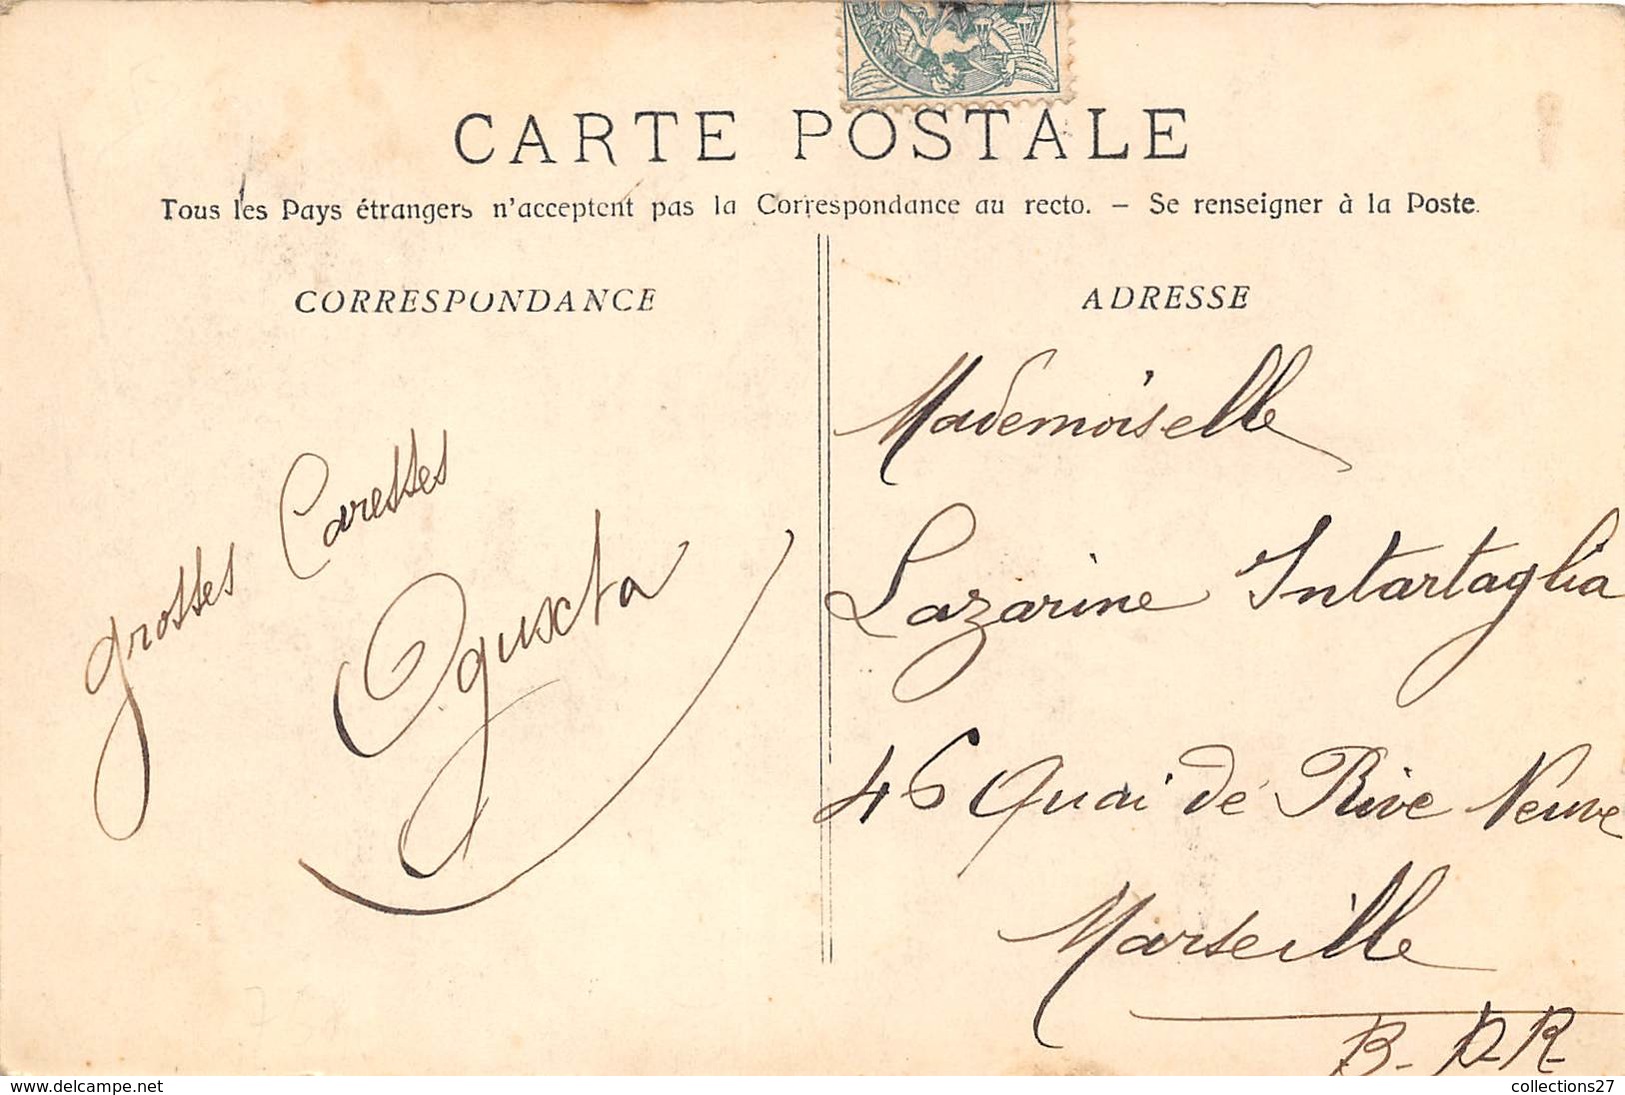 CARTE POSTALE
Tous les Pays étrangers n'acceptent pas la Correspondance au recto. — Se renseigner à la Poste.
CORRESPONDANCE
grosses Caresses
ADRESSE
Mademoiselle
Lazarine Intartaglia
46 Quai de Rive Neuve
Marseille
B-D-R-
collections27
© delcampe.net